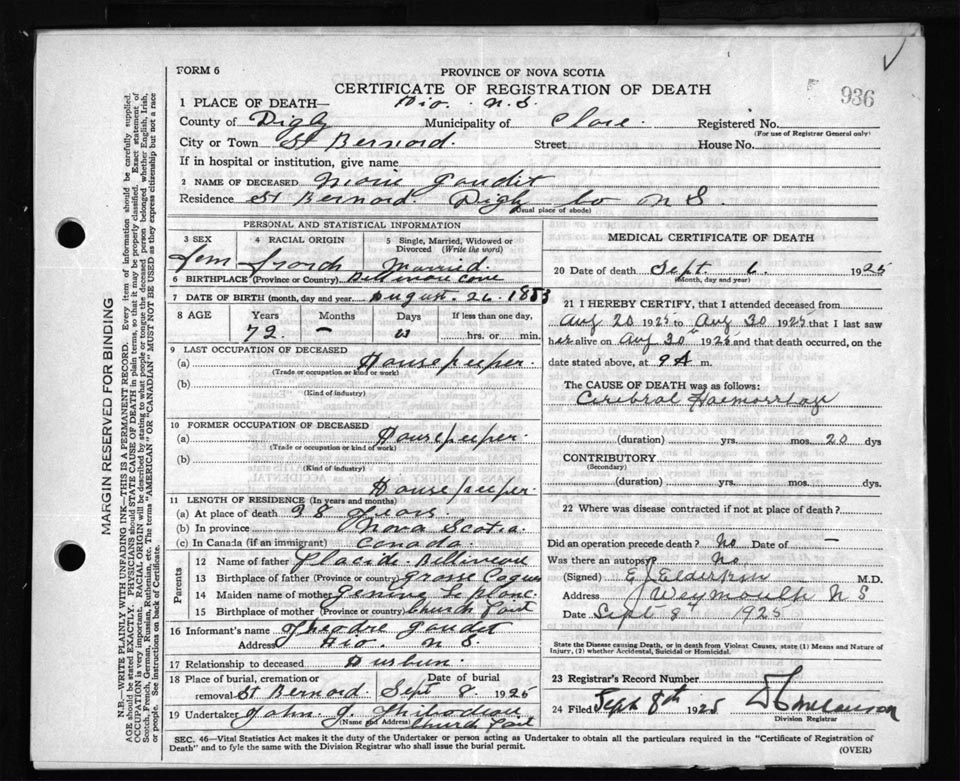 FORM 6
PROVINCE OF NOVA SCOTIA
CERTIFICATE OF REGISTRATION OF DEATH
936
1 PLACE OF DEATH— N.S.
County of Digby Municipality of Clare. Registered No.
(For use of Registrar General only)
City or Town St Bernard. Street House No.
If in hospital or institution, give name
2 NAME OF DECEASED Marie Gaudit
Residence St Bernard. Digby Co N S.
(Usual place of abode)
PERSONAL AND STATISTICAL INFORMATION
3 SEX 4 RACIAL ORIGIN 5 Single, Married, Widowed or Divorced (Write the word)
Fem Married.
6 BIRTHPLACE (Province or Country) Cove
7 DATE OF BIRTH (month, day and year) August. 26. 1853
8 AGE Years Months Days If less than one day,
72. — hrs. or min.
9 LAST OCCUPATION OF DECEASED
(a) Housepeeper.
(Trade or occupation or kind of work)
(b)
(Kind of industry)
10 FORMER OCCUPATION OF DECEASED
(a) Housepeeper.
(Trade or occupation or kind of work)
(b)
(Kind of industry)
Housepeeper.
11 LENGTH OF RESIDENCE (In years and months)
(a) At place of death 28 years
(b) In province Nova Scotia.
(c) In Canada (if an immigrant) Canada.
Parents
12 Name of father Placide Belliveau
13 Birthplace of father (Province or country) Grosse Coques
14 Maiden name of mother Le blanc.
15 Birthplace of mother (Province or country) Church Point
16 Informant's name Theodre Gaudet
Address N S
17 Relationship to deceased Husbun.
18 Place of burial, cremation or removal St Bernard. Date of burial Sept 8. 1925
19 Undertaker John J. Thibodeau
(Name and Address) Church Point
MEDICAL CERTIFICATE OF DEATH
20 Date of death Sept. 6. 1925
(Month, day and year)
21 I HEREBY CERTIFY, that I attended deceased from
Aug 20 1925 to Aug 30 1925 that I last saw
her alive on Aug 30th 1925 and that death occurred, on the
date stated above, at 9 A m.
The CAUSE OF DEATH was as follows:
Cerebral Haemorrhage
(duration) yrs. mos. 20 dys
CONTRIBUTORY
(Secondary)
(duration) yrs. mos. dys.
22 Where was disease contracted if not at place of death?
Did an operation precede death? No Date of —
Was there an autopsy? No
(Signed) E J Elderkin M.D.
Address Weymouth N S
Date Sept 8th 1925
State the Disease causing Death, or in death from Violent Causes, state (1) Means and Nature of Injury, (2) whether Accidental, Suicidal or Homicidal.
23 Registrar's Record Number
24 Filed Sept 8th 1925
Division Registrar
SEC. 46—Vital Statistics Act makes it the duty of the Undertaker or person acting as Undertaker to obtain all the particulars required in the "Certificate of Registration of
Death" and to fyle the same with the Division Registrar who shall issue the burial permit.
(OVER)
MARGIN RESERVED FOR BINDING
N.B.—WRITE PLAINLY WITH UNFADING INK—THIS IS A PERMANENT RECORD. Every item of information should be carefully supplied.
AGE should be stated EXACTLY. PHYSICIANS should STATE CAUSE OF DEATH in plain terms, so that it may be properly classified. Exact statement of
OCCUPATION is very important. RACIAL ORIGIN will be described by stating to what people or tongue the deceased person belonged whether English, Irish,
Scotch, French, German, Russian, Ruthenian, etc. The terms "AMERICAN" or "CANADIAN" MUST NOT BE USED as they express citizenship but not a race
or people. See instructions on back of Certificate.